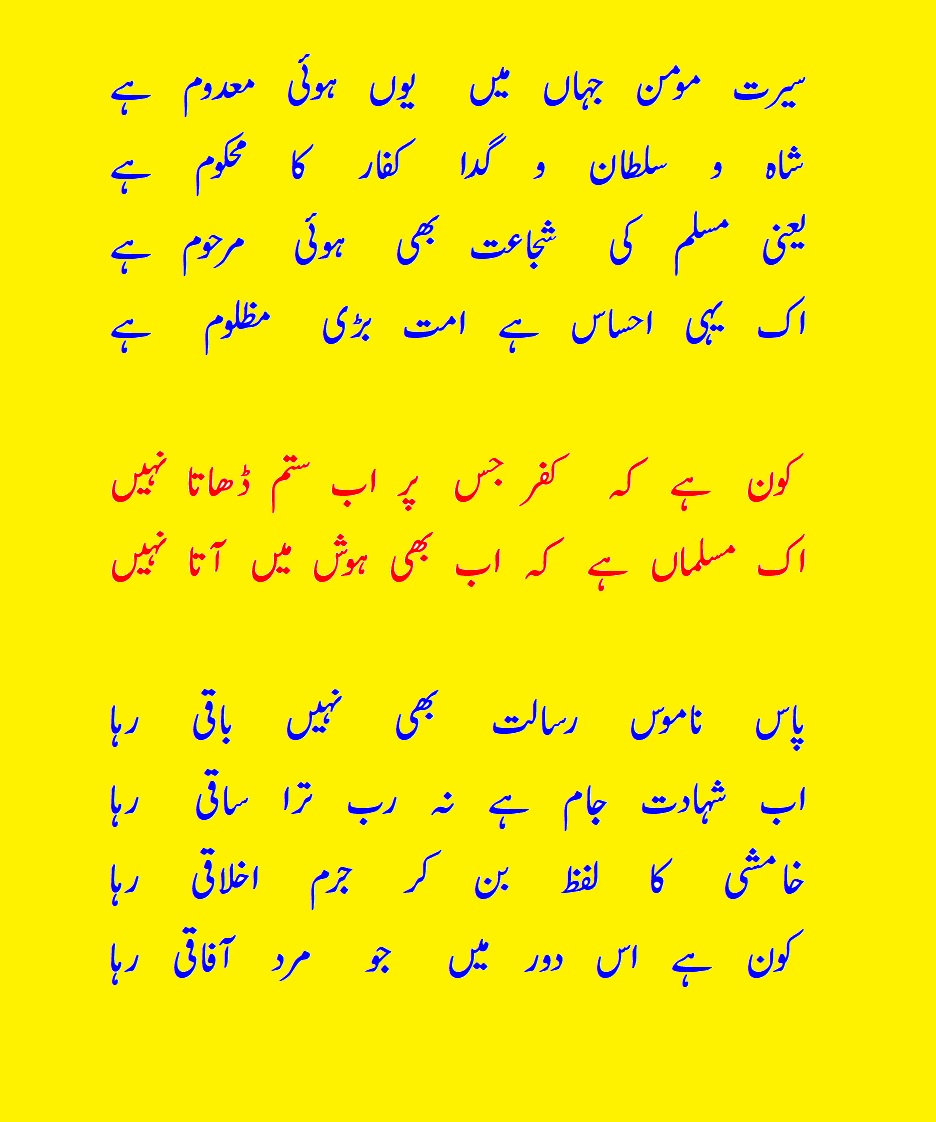 سیرت مومن جہاں میں یوں ہوئی معدوم ہے
شاہ و سلطان و گدا کفار کا محکوم ہے
یعنی مسلم کی شجاعت بھی ہوئی مرحوم ہے
اک یہی احساس ہے امت بڑی مظلوم ہے
کون ہے کہ کفر جس پر اب ستم ڈھاتا نہیں
اک مسلماں ہے کہ اب بھی ہوش میں آتا نہیں
پاس ناموس رسالت بھی نہیں باقی رہا
اب شہادت جام ہے نہ رب ترا ساقی رہا
خامشی کا لفظ بن کر جرم اخلاقی رہا
کون ہے اس دور میں جو مرد آفاقی رہا